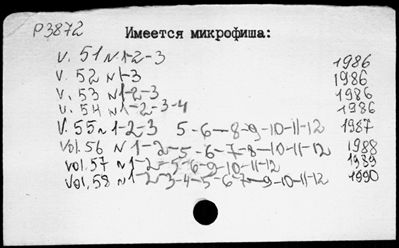 P3872
Имеется микрофиша:
v. 51 N 1-2-3 1986
v. 52 N 1-3 1986
v. 53 N 1-2-3 1986
v. 54 N 1-2-3-4 1986
v. 55 N 1-2-3 5-6-8-9-10-11-12 1987
vol. 56 N 1-2-5-6-7-8-10-11-12 1988
vol. 57 N 1-2-5-6-9-10-11-12 1989
vol. 58 N 1-2-3-4-5-6-7-9-10-11-12 1990